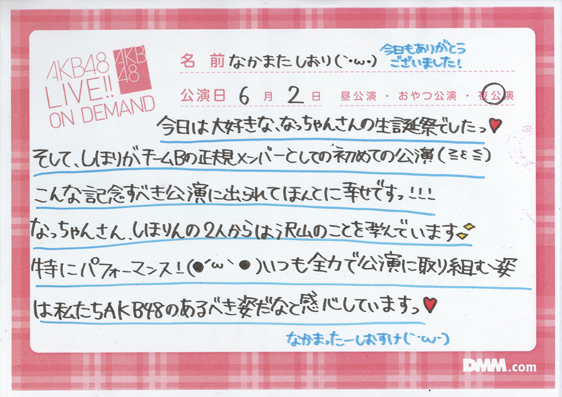 AKB48
LIVE!!
ON DEMAND
AKB
48
名 前 なかまたしおり(`･ω･)
今日もありがとう
ございました!
公演日 6 月 2 日 昼公演・おやつ公演・夜公演
今日は大好きな、なっちゃんさんの生誕祭でしたっ♥
そして、しほりがチームBの正規メンバーとしての初めての公演(ミεミ)
こんな記念すべき公演に出られてほんとに幸せですっ!!!
なっちゃんさん、しほりんの2人からは沢山のことを学んでいます
特にパフォーマンス!(●´ω`●)いつも全力で公演に取り組む姿
は私たちAKB48のあるべき姿だなと感心していますっ♥
なかまったーしおすけ(`･ω･)
DMM.com